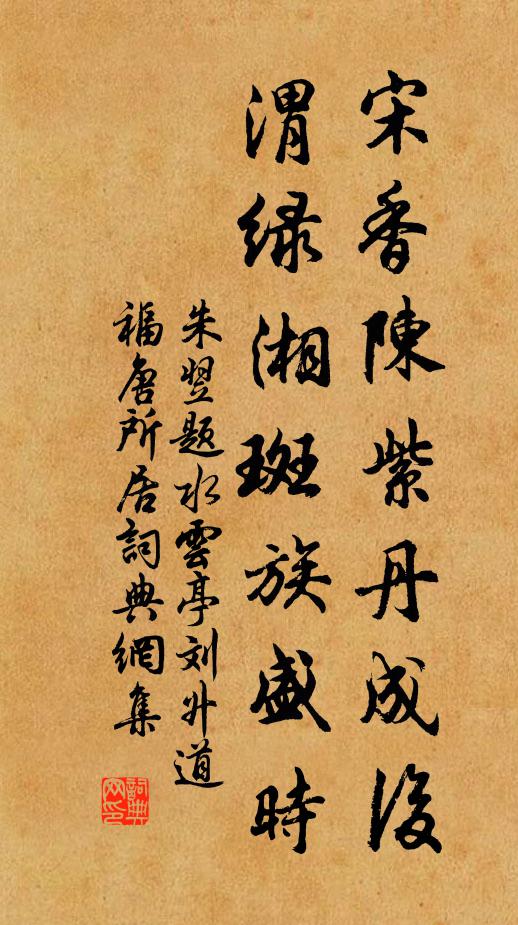 宋香陳紫丹成後
渭緑湘斑族盛時
朱翌題水雲亭刘升道
福唐所居詞典網集
詞典網印